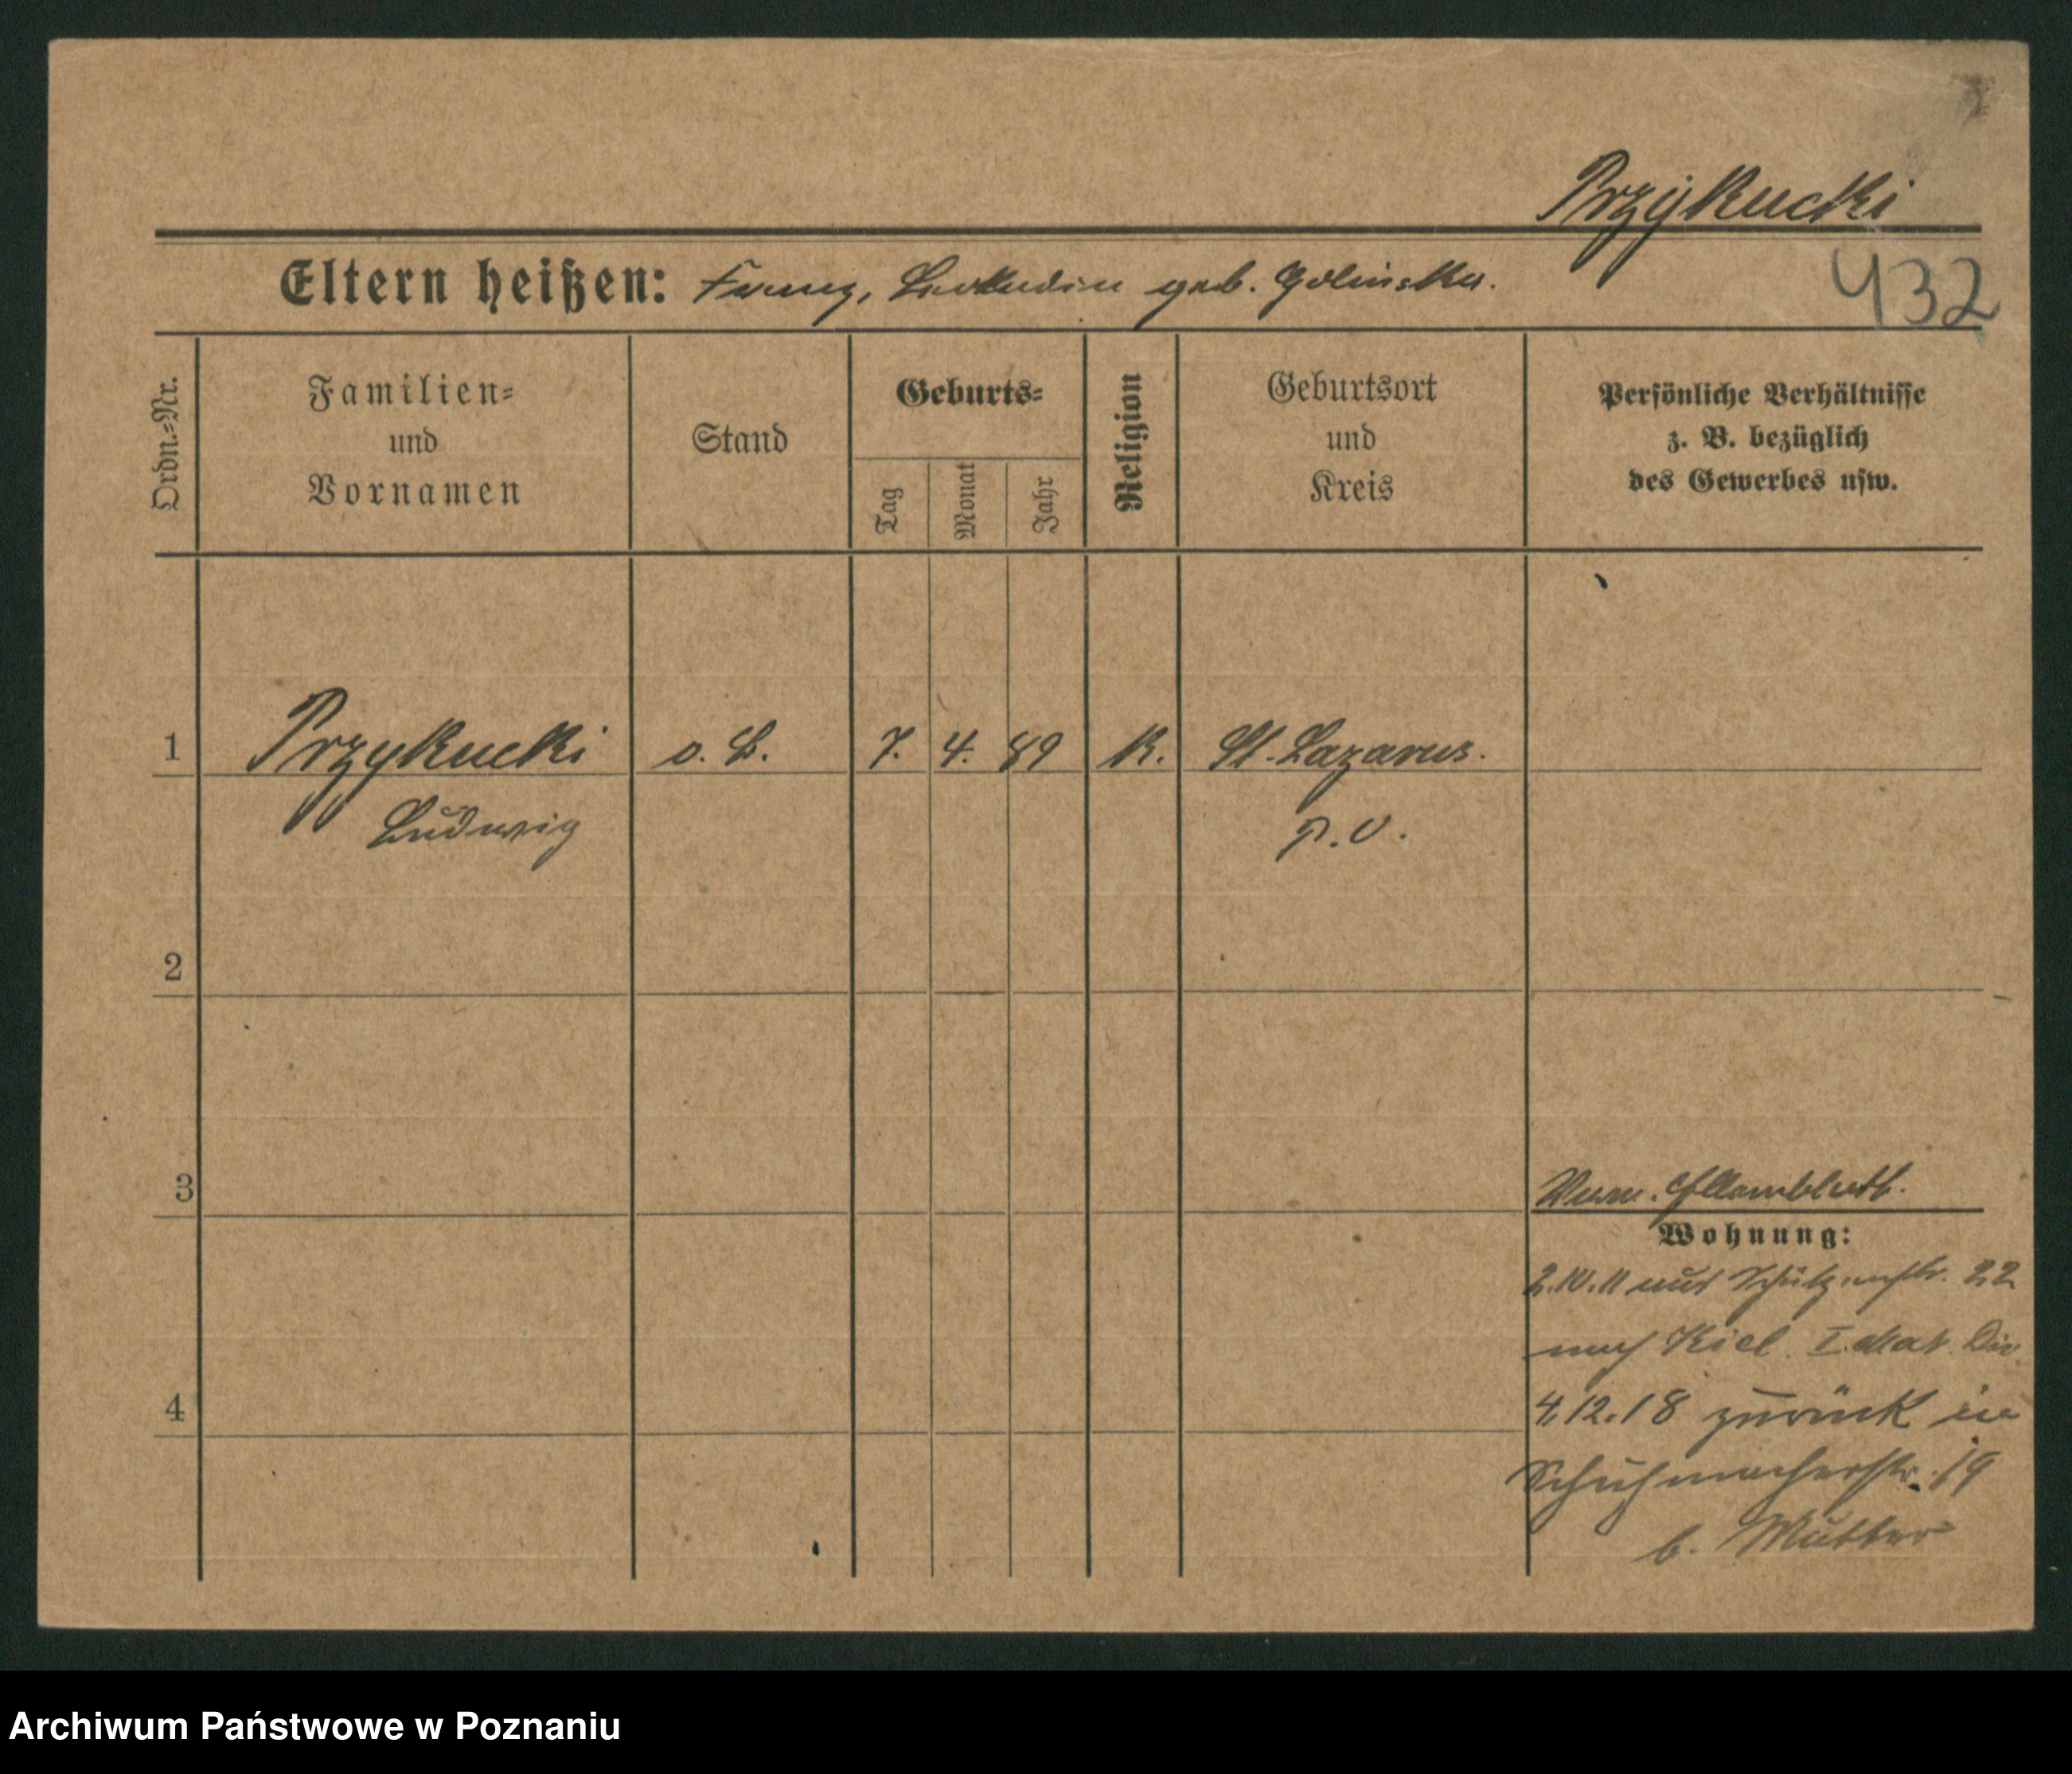 Przykucki
Eltern heißen: Franz, Leokadia geb. Golinska.
432
Ordn.=Nr.
Familien=
und
Vornamen
Stand
Geburts=
Tag
Monat
Jahr
Religion
Geburtsort
und
Kreis
Persönliche Verhältnisse
z. B. bezüglich
des Gewerbes usw.
1 Przykucki o. B. 7. 4. 89 K. St. Lazarus.
Ludwig P. O.
2
3
4
Wohnung:
2.10.11 aus Schützenstr. 22
nach Kiel I. Mat. Div.
4.12.18 zurück in
Schuhmacherstr. 19
b. Mutter
Archiwum Państwowe w Poznaniu